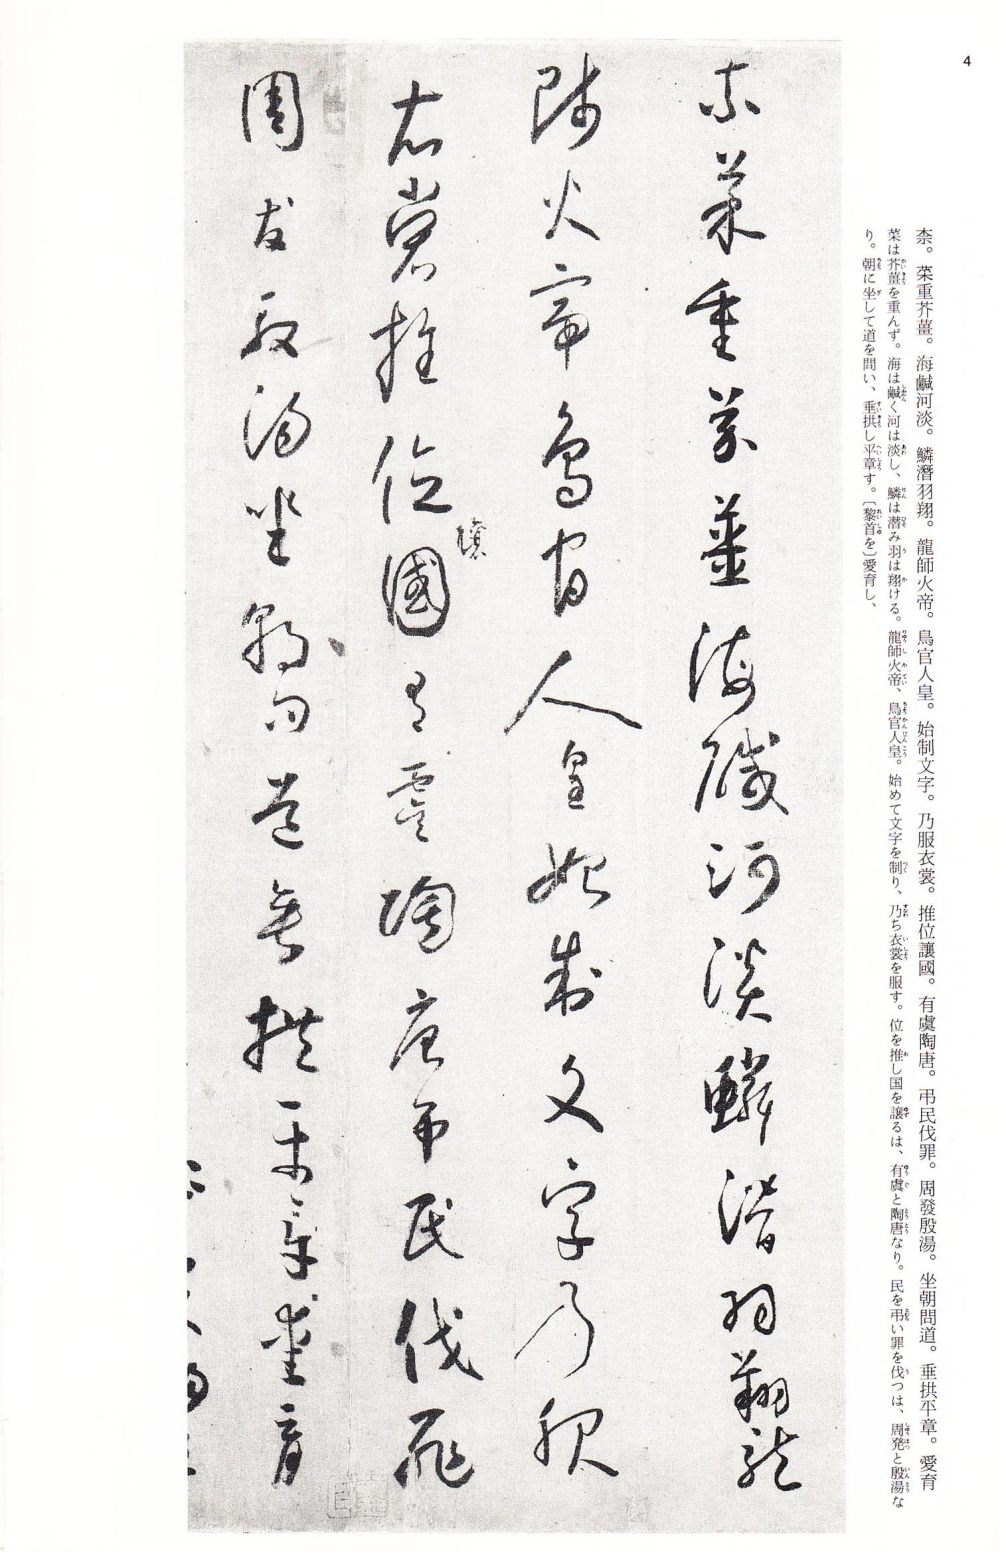 4
柰。菜重芥薑。海鹹河淡。鱗潛羽翔。龍師火帝。鳥官人皇。始制文字。乃服衣裳。推位讓國。有虞陶唐。弔民伐罪。周發殷湯。坐朝問道。垂拱平章。愛育
菜は芥薑を重んず。海は鹹く河は淡し、鱗は潜み羽は翔ける。龍師火帝、鳥官人皇。始めて文字を制り、乃ち衣裳を服す。位を推し国を譲るは、有虞と陶唐なり。民を弔い罪を伐つは、周発と殷湯な
り。朝に坐して道を問い、垂拱し平章す。〔黎首を〕愛育し、
柰菜重芥薑海鹹河淡鱗潛羽翔龍
師火帝鳥官人皇始制文字乃服
衣裳推位讓國有虞陶唐弔民伐罪
周發殷湯坐朝問道垂拱平章愛育